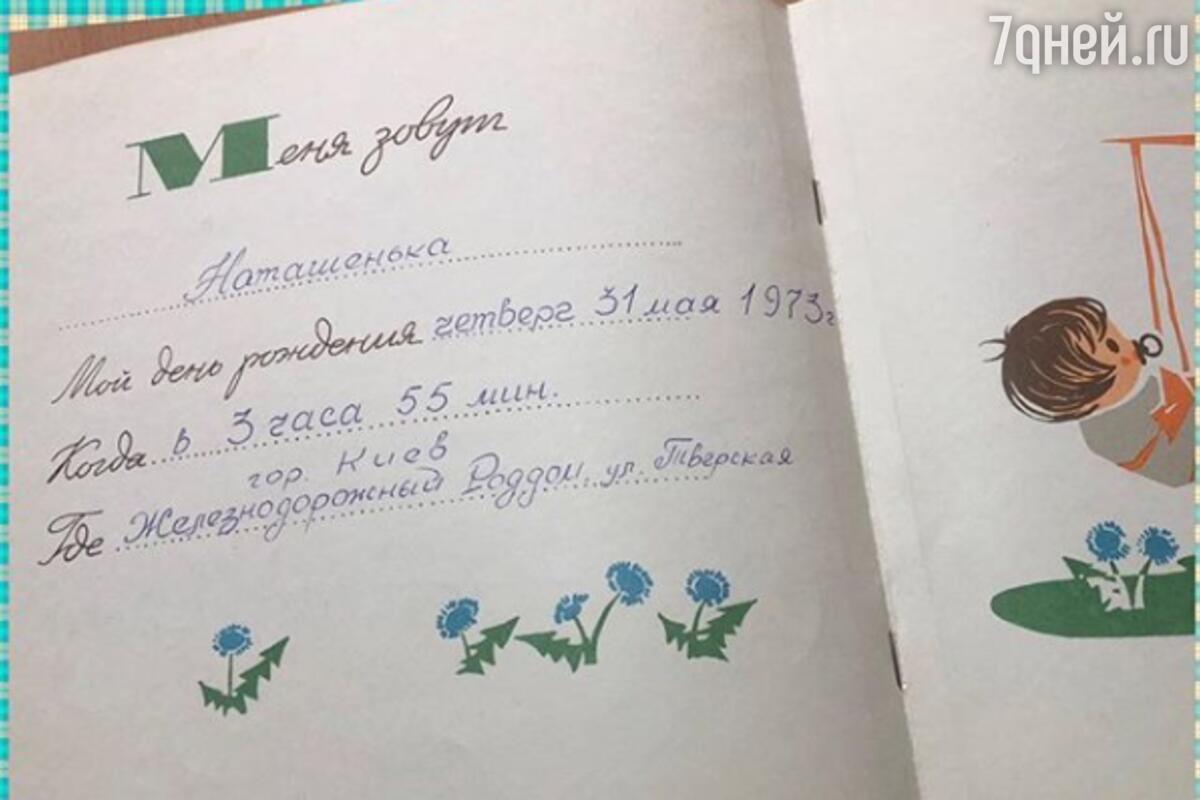 7дней.ru
Меня зовут
Наташенька
Мой день рождения четверг 31 мая 1973г
Когда в 3 часа 55 мин.
гор. Киев
Где Железнодорожный Роддом, ул. Тверская